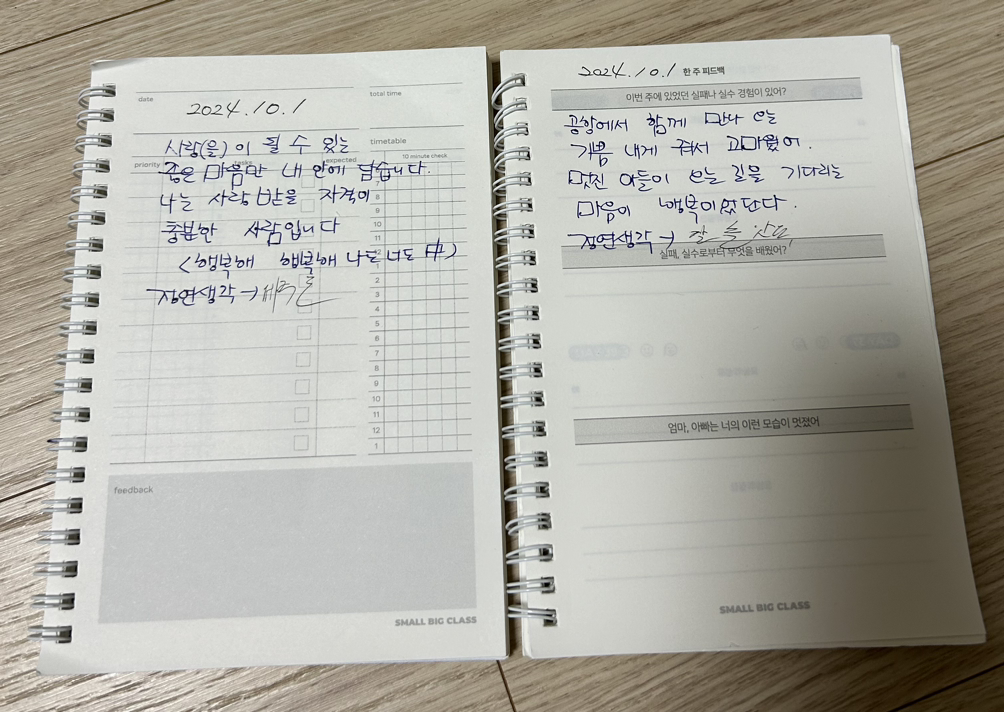 date
total time
2024.10.1
사랑(을)이 필 수 있는
timetable
priority
tasks
expected
10 minute check
좋은 마음만 내 안에 담습니다.
나는 사랑 받을 자격이
8
9
10
충분한 사람입니다
11
12
<행복해 행복해 나도 너도 야>
1
정연생각→
2
3
4
5
6
7
8
9
10
11
12
1
feedback
SMALL BIG CLASS
2024.10.1 한 주 피드백
이번 주에 있었던 실패나 실수 경험이 있어?
공항에서 함께 만나 오는
기쁨 내게 줘서 고마웠어.
멋진 아들이 오는 길을 기다리는
마음이 행복이었단다.
정연생각→
실패, 실수로부터 무엇을 배웠어?
엄마, 아빠는 너의 이런 모습이 멋졌어
SMALL BIG CLASS